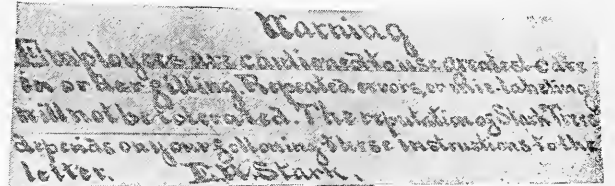 Warning
Employers are cautioned to use greatest care
in order filling. Repeated errors, or mis-labeling
will not be tolerated. The reputation of Stark Trees
depends on your following these instructions to the
letter. Stark.